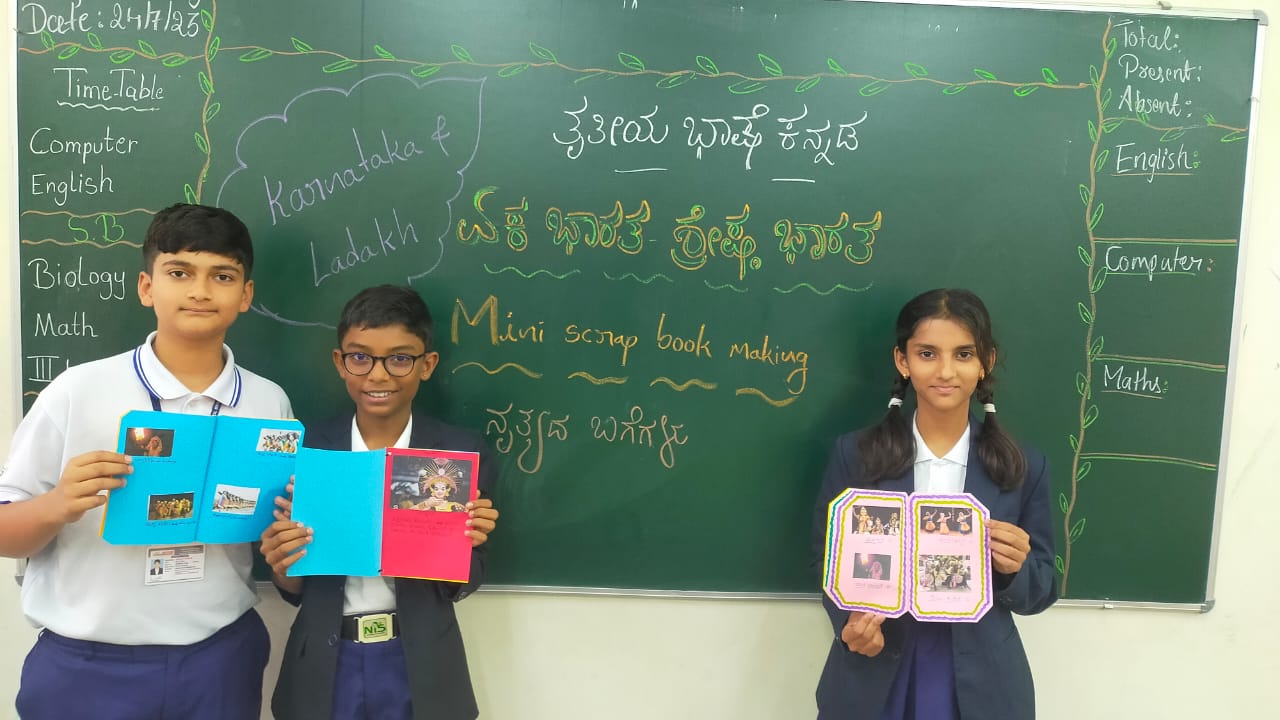 Date: 24/7/23
Time-Table
Computer
English
S.B
Biology
Math
III
Karnataka &
Ladakh
ತೃತೀಯ ಭಾಷೆ ಕನ್ನಡ
ಏಕ ಭಾರತ - ಶ್ರೇಷ್ಠ ಭಾರತ
Mini scrap book making
ನೃತ್ಯದ ಬಗೆಗಳು
Total:
Present:
Absent:
English:
Computer:
Maths:
NIS